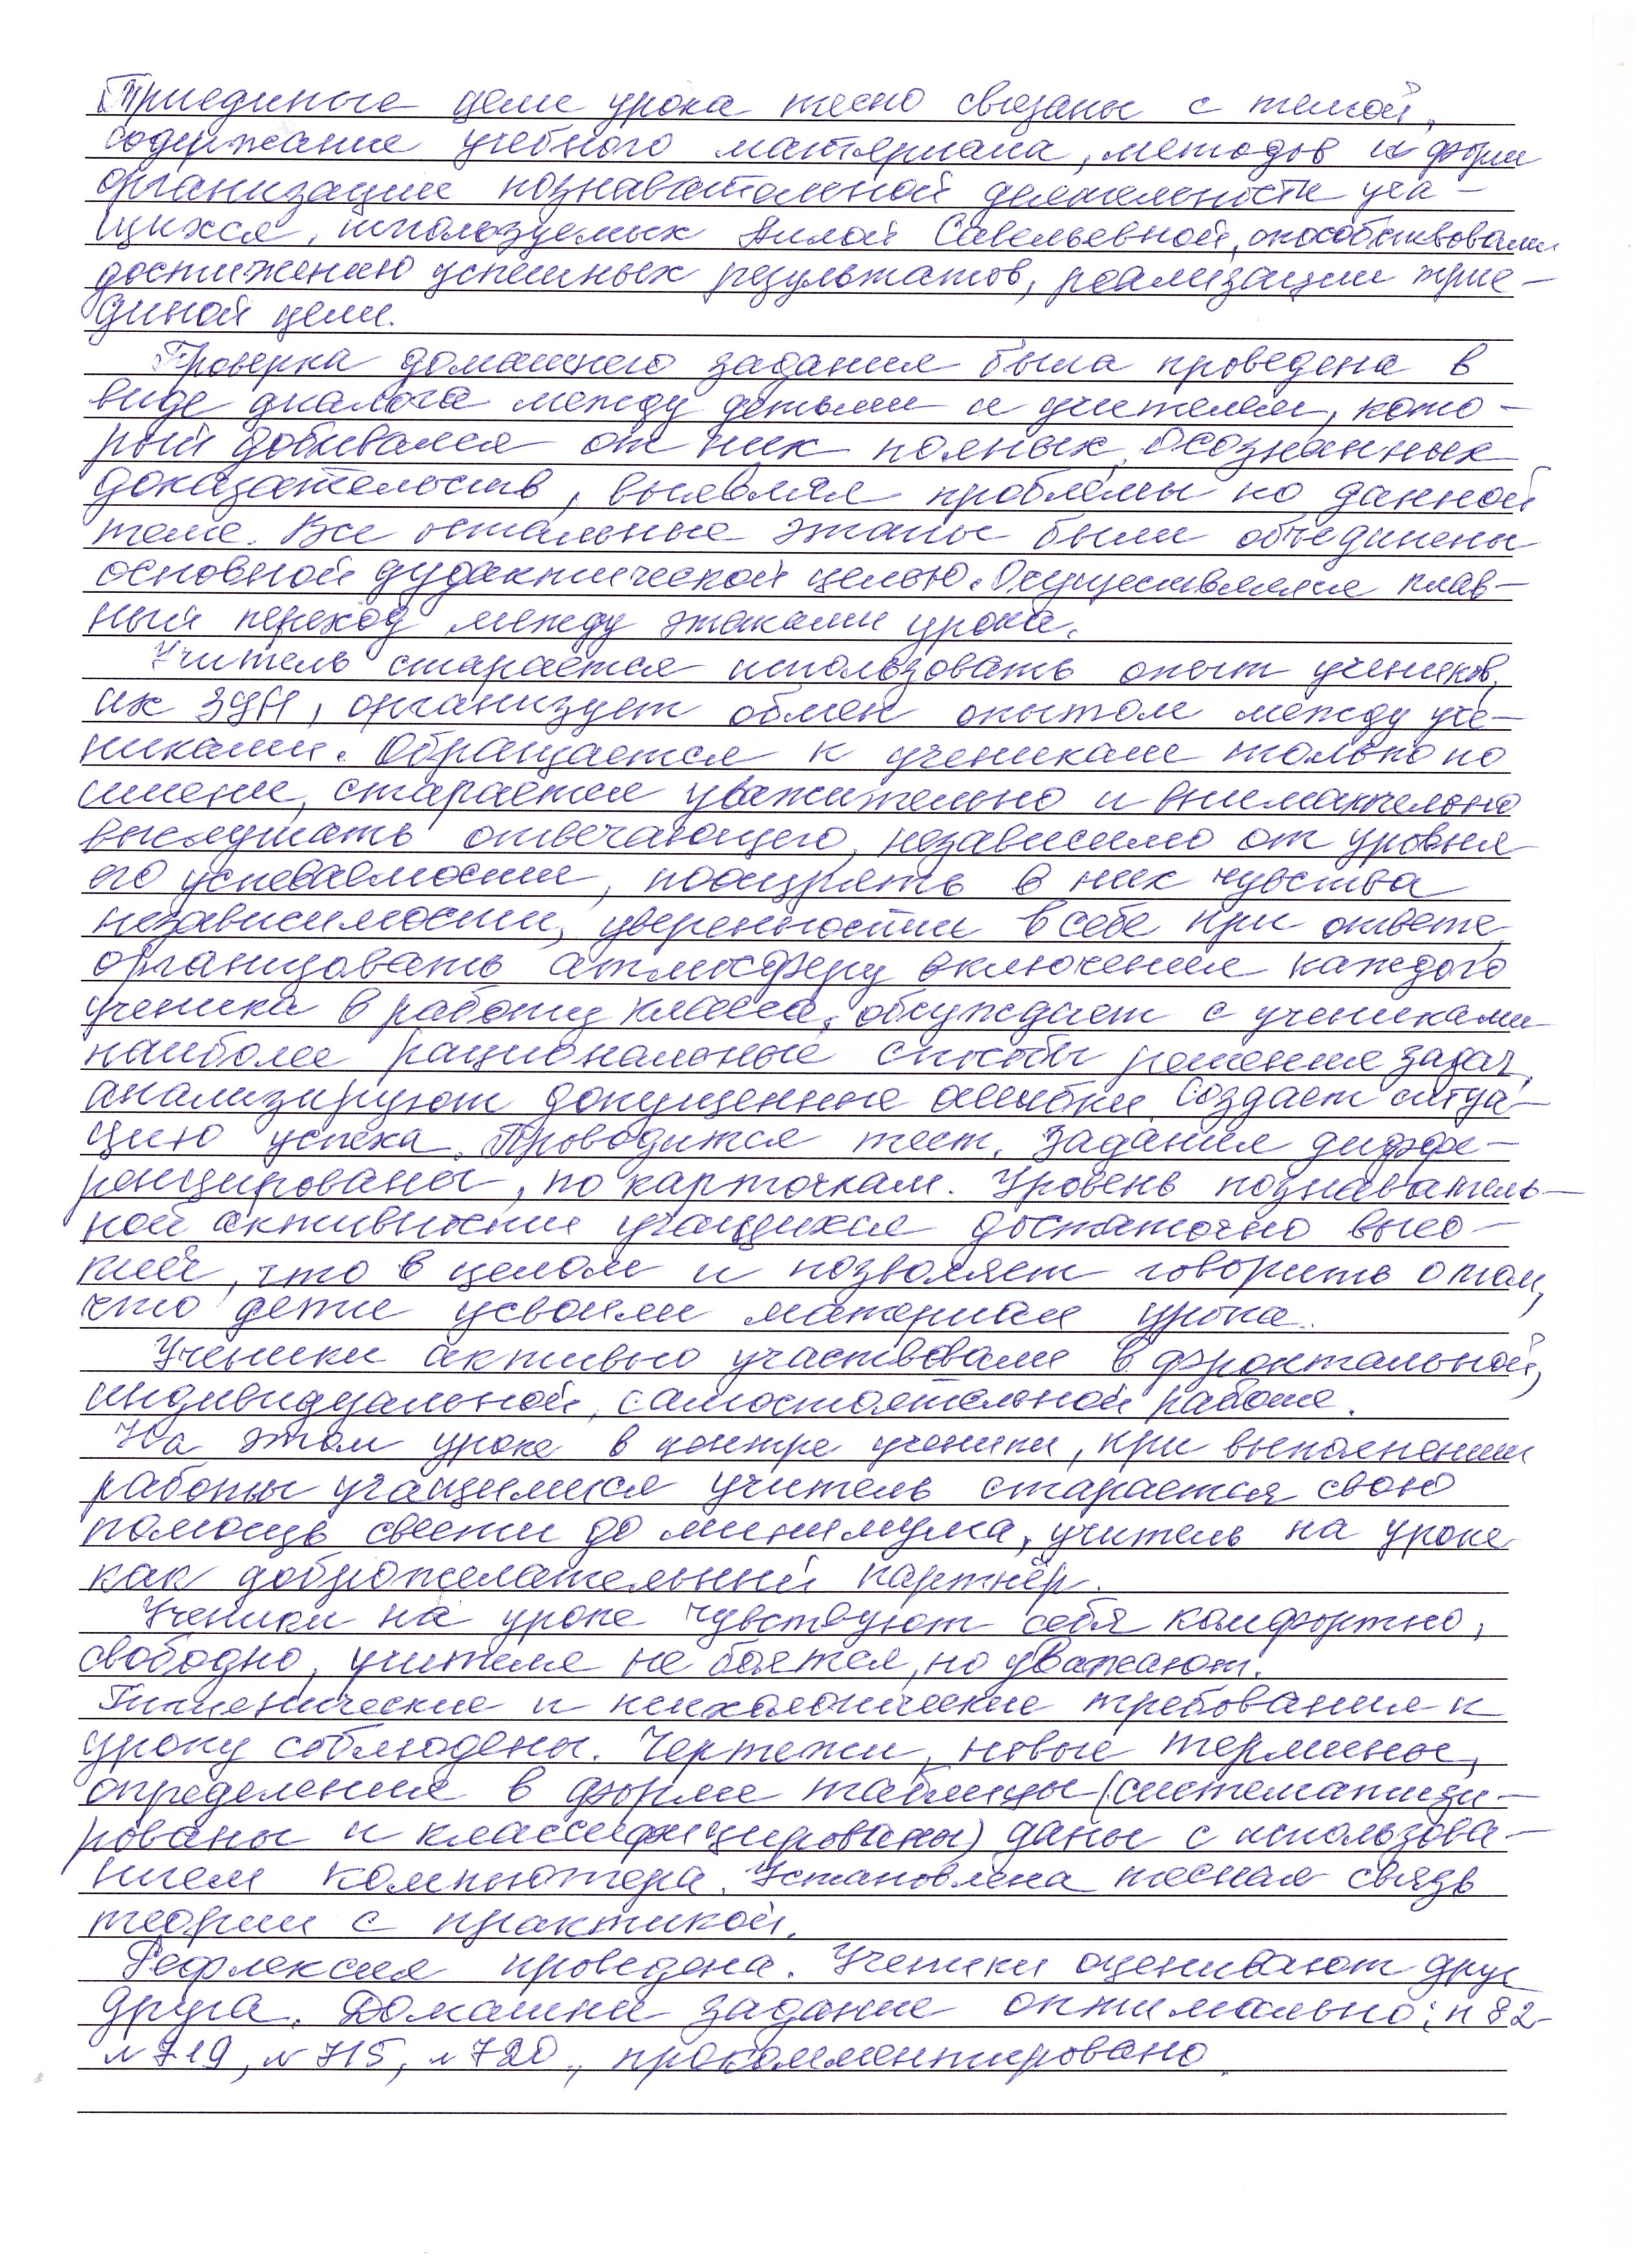 Триединые цели урока тесно связаны с темой,
содержание учебного материала, методов и форм
организации познавательной деятельности уча-
щихся, используемых Аилой Савельевной, способствовали
достижению успешных результатов, реализации трие-
диной цели.
Проверка домашнего задания была проведена в
виде диалога между детьми и учителем, кото-
рый добивался от них полных, осознанных
доказательств, выявлял проблемы по данной
теме. Все остальные этапы были объединены
основной дудактической целью. Осуществлялся плав-
ный переход между этапами урока.
Учитель старается использовать опыт учеников,
их ЗУН, организует обмен опытом между уче-
никами. Обращается к ученикам только по
имени, старается уважительно и внимательно
выслушать отвечающего, независимо от уровня
его успеваемости, поощрять в них чувства
независимости, уверенности в себе при ответе,
организовать атмосферу включения каждого
ученика в работу класса, обсуждает с учениками
наиболее рациональные способы решения задач,
анализируют допущенные ошибки, создает ситуа-
цию успеха. Проводится тест. Задания диффе-
ренцированы, по карточкам. Уровень познаватель-
ной активности учащихся достаточно высо-
кий, что в целом и позволяет говорить о том,
что дети усвоили материал урока.
Ученики активно участвовали в фронтальной,
индивидуальной, самостоятельной работе.
На этом уроке в центре ученики, при выполнении
работы учащимися учитель старается свою
помощь свести до минимума, учитель на уроке
как доброжелательный партнёр.
Ученики на уроке чувствуют себя комфортно,
свободно, учителя не боятся, но уважают.
Гигиенические и психологические требования к
уроку соблюдены. Чертежи, новые термины,
определения в форме таблицы (систематизи-
рованы и классифицированы) даны с использова-
нием компьютера. Установлена тесная связь
теории с практикой.
Рефлексия проведена. Ученики оценивают друг
друга. Домашнее задание оптимально: п 82
№719, №715, №720, прокомментировано.